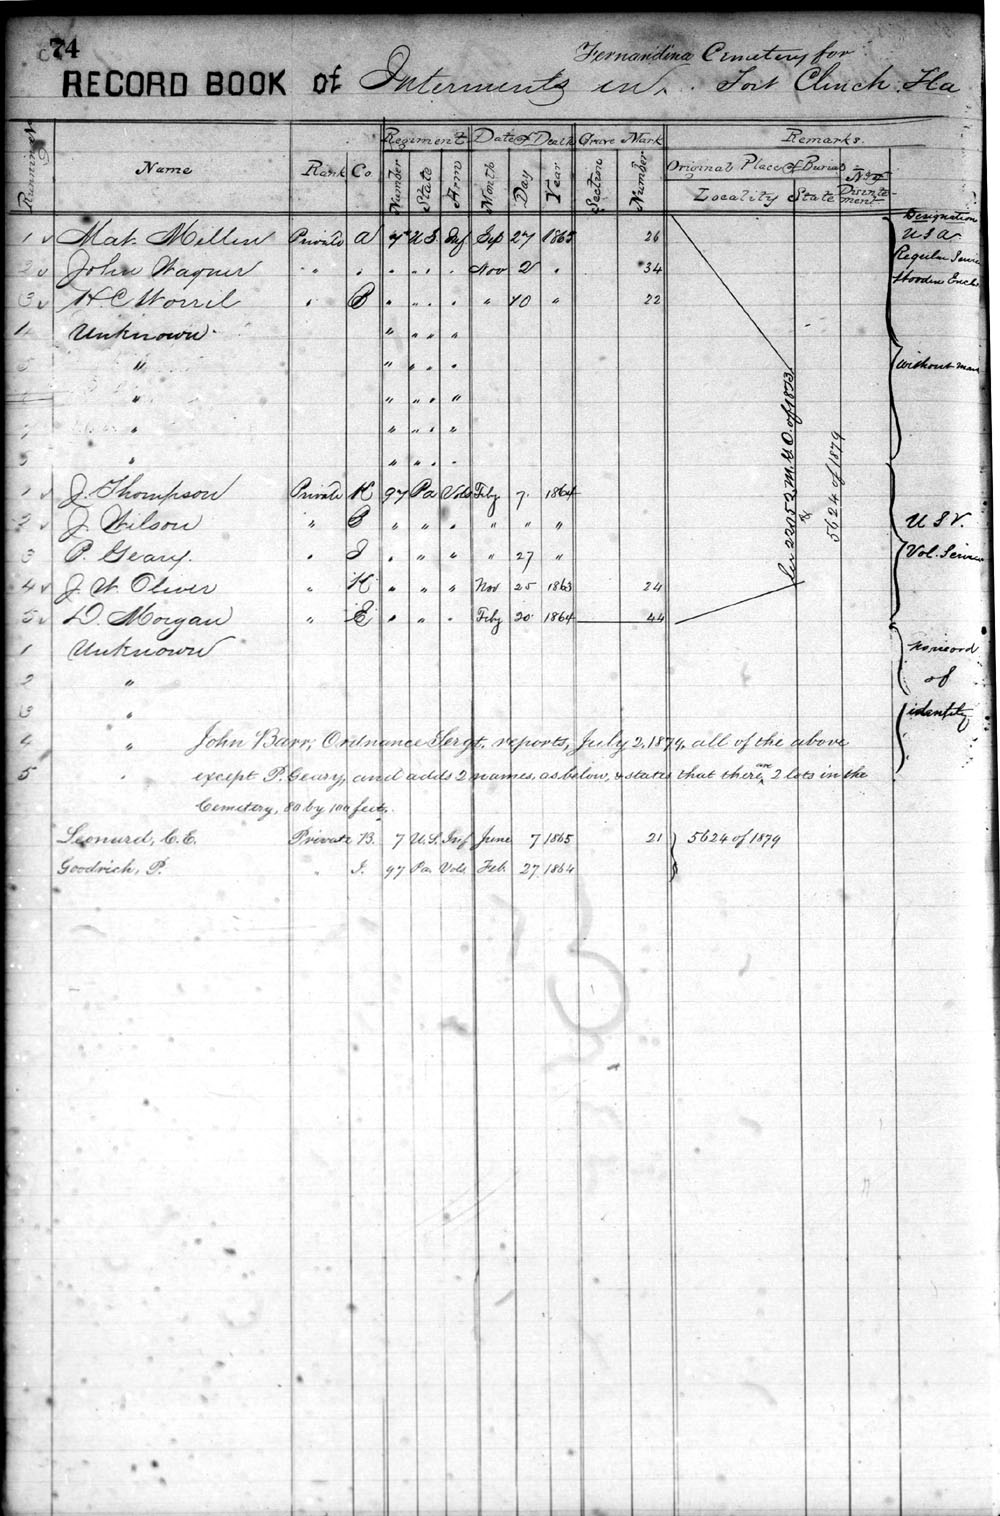 74
Fernandina Cemetery for
RECORD BOOK of Interments in Fort Clinch Fla
Regiment Date of Death Grave Mark Remarks.
Running No Name Rank Co. Number State Arm Month Day Year Section Number Original Place of Burial No of
Locality State Disinterment
Designation
1 v Mat. Mellen Private A 7" U S Inf Sep 27 1865 26 U S A
Regular Service
2 v John Wagner " " " " " " Nov 2 " 34
Wooden Encl
3 v H. C. Worril " B " " " " 10 " 22
1 Unknown " " " "
" " " " " without mark
" " " " "
" " " " "
5 " " " " "
1 v J. Thompson Private K 97 Pa Vols Feby 7 1864
2 v J. Wilson " B " " " " " " U S V.
3 P. Geary. " I " " " " 27 " Vol. Service
4 v J. W. Oliver " K " " " Nov 25 1863 24
5 v D. Morgan " E " " " Feby 20 1864 44
22052 M. G. O. of 1873
&
5624 of 1879
1 Unknown no record
2 " of
3 " identity
4 " John Barr, Ordnance Sergt. reports, July 2, 1879, all of the above
5 " except P. Geary, and adds 2 names, as below, & states that there are 2 lots in the
Cemetery, 80 by 100 feet.
Leonard, C. E. Private B. 7 U.S. Inf June 7 1865 21 5624 of 1879
Goodrich, P. " I. 97 Pa. Vols Feb. 27 1864